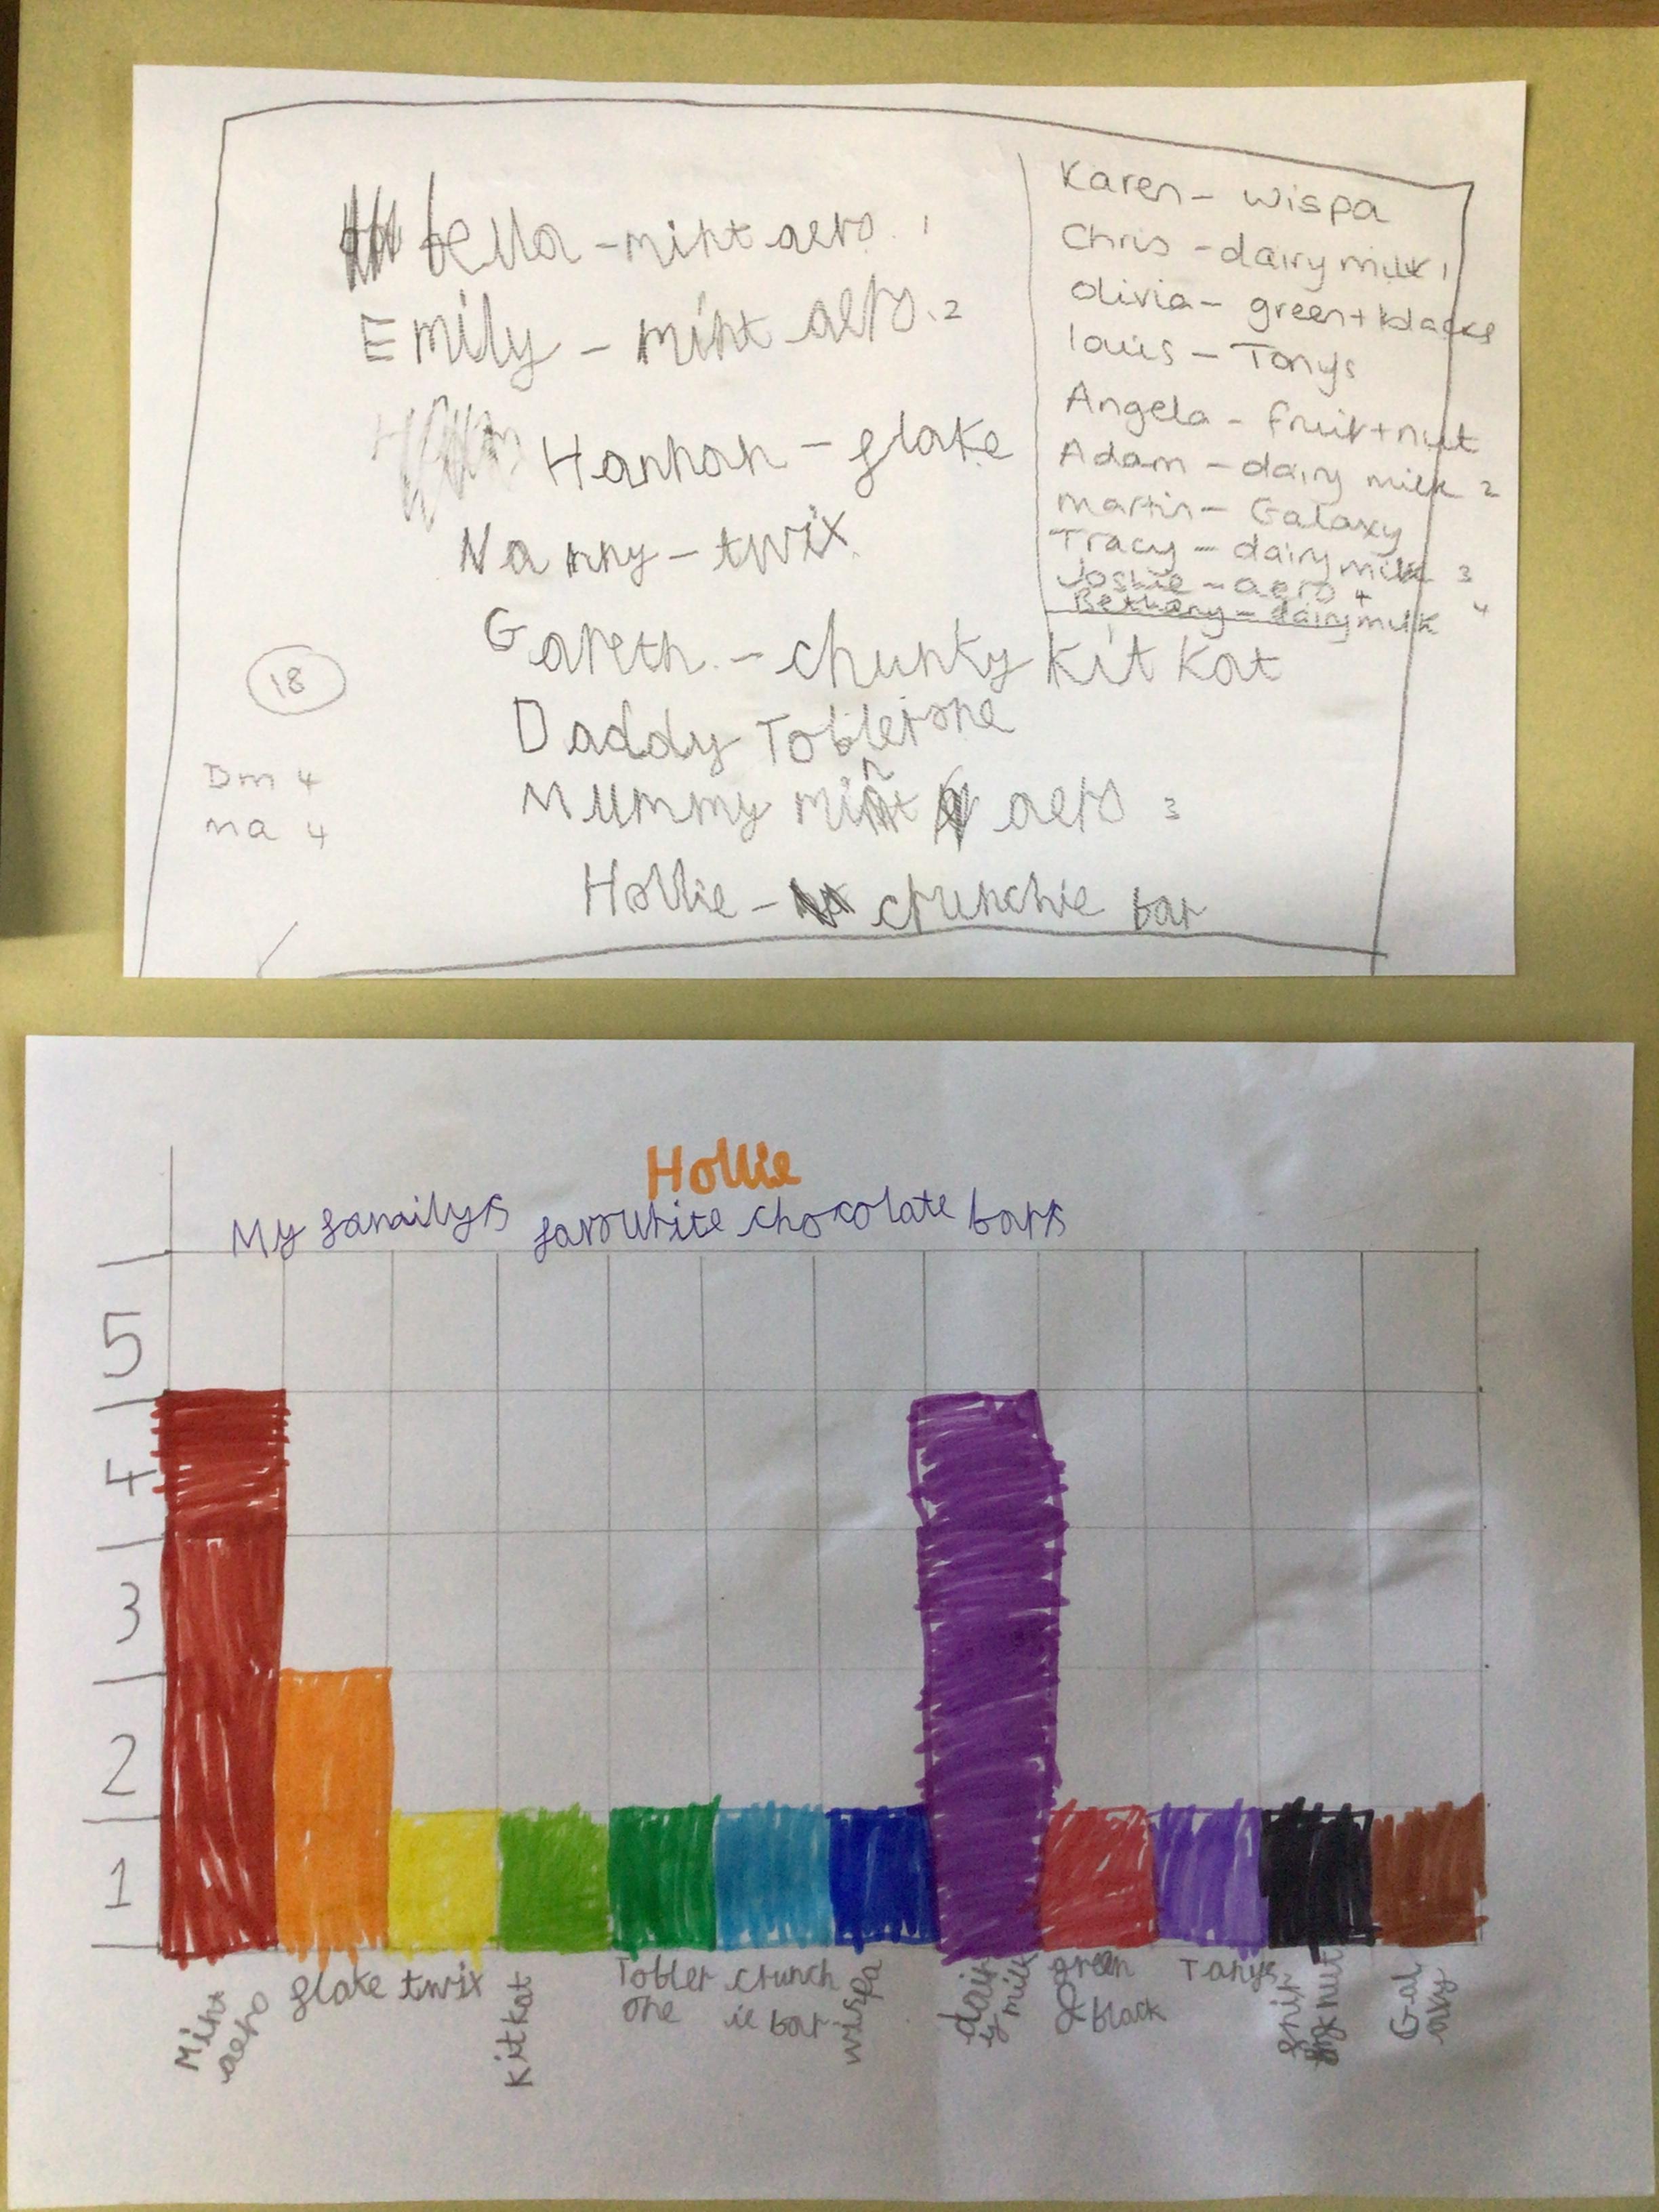 bella - mint aero. 1
Emily - mint aero. 2
Hannah - flake
Nanny - twix
Gareth. - chunky kit kat
Daddy Toblerone
Mummy mint aero 3
Hollie - crunchie bar
18
Dm 4
ma 4
Karen - wispa
Chris - dairy milk 1
Olivia - green + blacks
louis - Tonys
Angela - fruit + nut
Adam - dairy milk 2
martin - Galaxy
Tracy - dairy milk 3
Joshie - aero 4
Bethany - dairy milk 4
Hollie
My familys favourite chocolate bars
5
4
3
2
1
Mint aero
flake
twix
kitkat
Tobler one
crunch ie bar
wispa
dair y milk
green & black
Tonys
fruit nut
Gal axy